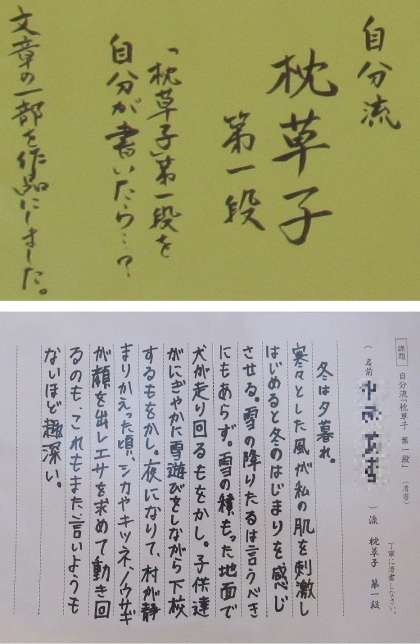 自分流
枕草子
第一段
「枕草子」第一段を
自分が書いたら…?
文章の一部を作品にしました。
課題 自分流「枕草子 第一段」(清書)
丁寧に清書しなさい。
(名前
)流 枕草子 第一段
冬は夕暮れ。
寒々とした風が私の肌を刺激し
はじめると冬のはじまりを感じ
させる。雪の降りたるは言うべき
にもあらず。雪の積もった地面で
犬が走り回るもをかし。子供達
がにぎやかに雪遊びをしながら下校
するもをかし。夜になりて、村が静
まりかえった頃、シカやキツネ、ノウサギ
が顔を出しエサを求めて動き回
るのも、これもまた、言いようも
ないほど趣深い。